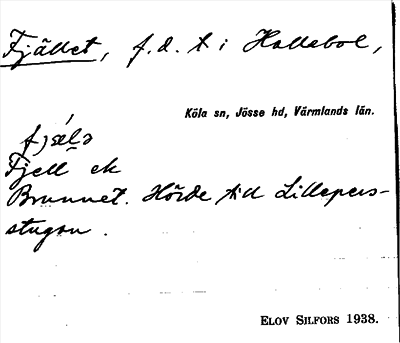 Fjället, f.d. t i Hallebol,
Köla sn, Jösse hd, Värmlands län.
Fjell ek
Brunnet. Hörde till Lillepers-
stugan.
ELOV SILFORS 1938.